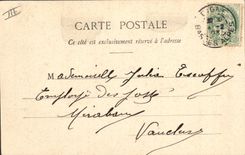 CARTE POSTALE
Ce côté est exclusivement réservé à l'adresse
Mademoiselle Julia Escoffier
Employée des Postes
Mirabeau
Vaucluse